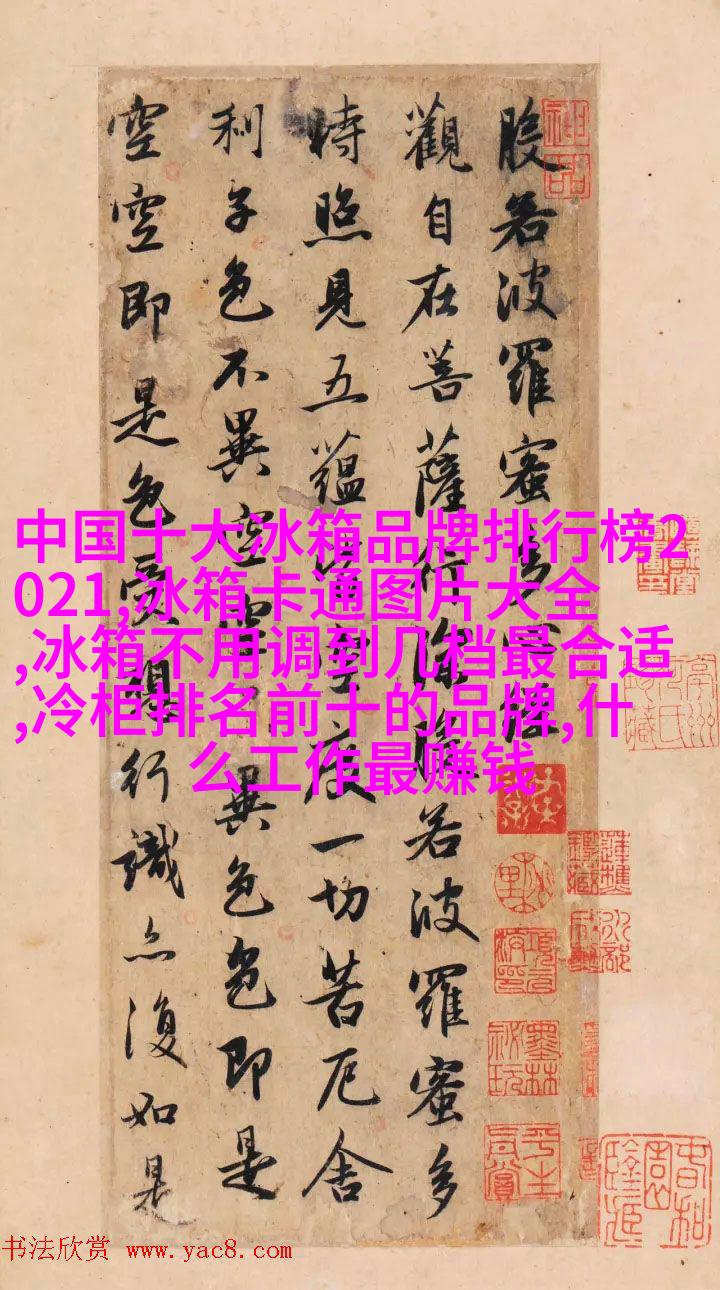 般若波羅蜜多心經
觀自在菩薩行深般若波羅蜜多
時照見五蘊皆空度一切苦厄舍
利子色不異空空不異色色即是
空空即是色受想行識亦復如是
神品
墨林
祕玩
中国十大冰箱品牌排行榜2
021,冰箱卡通图片大全
,冰箱不用调到几档最合适
,冷柜排名前十的品牌,什
么工作最赚钱
书法欣赏 www.yac8.com